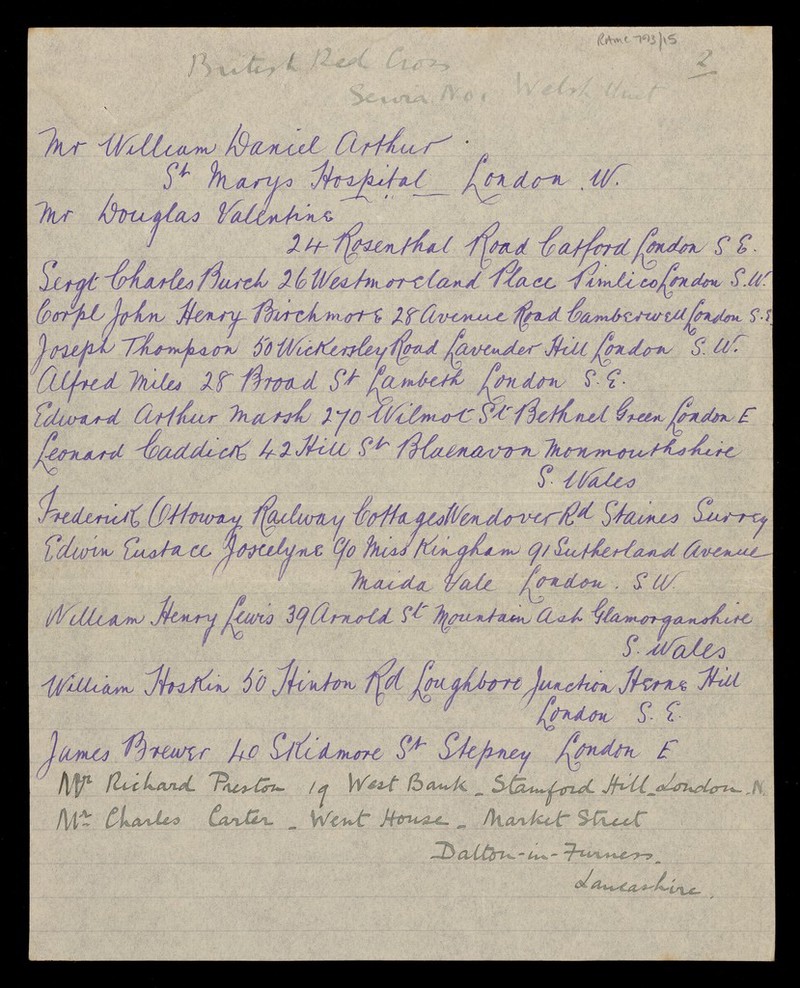 RAMC 793/15
2
British Red Cross
Servia No. Welsh Unit
Mr William Daniel Arthur
St Marys Hospital London . W.
Mr Douglas Valentine
24 Rosenthal Road Catford London S E.
Sergt Charles Burch 26 Westmoreland Place Pimlico London S.W.
Corpl John Henry Birchmore 28 Avenue Road Camberwell London S.E.
Joseph Thompson 50 Wickersley Road Lavender Hill London S. W.
Alfred Miles 28 Broad St Lambeth London S. E.
Edward Arthur Marsh 270 Wilmot St Bethnel Green London E
Leonard Caddick 42 Hill St Blaenavon Monmouthshire
S. Wales
Frederick Ottoway Railway Cottages Wendover Rd Staines Surrey
Edwin Eustace Joscelyne C/o Miss Kingham 91 Sutherland Avenue
Maida Vale London . S W
William Henry Lewis 39 Arnold St Mountain Ash Glamorganshire
S. Wales
William Hoskin 50 Hinton Rd Loughboro Junction Herne Hill
London S. E.
James Brewer 40 Skidmore St Stepney London E
Mr Richard Preston 19 West Bank - Stamford Hill - London - N.
Mr Charles Carter - Went House - Market Street
Dalton-in-Furness.
Lancashire.